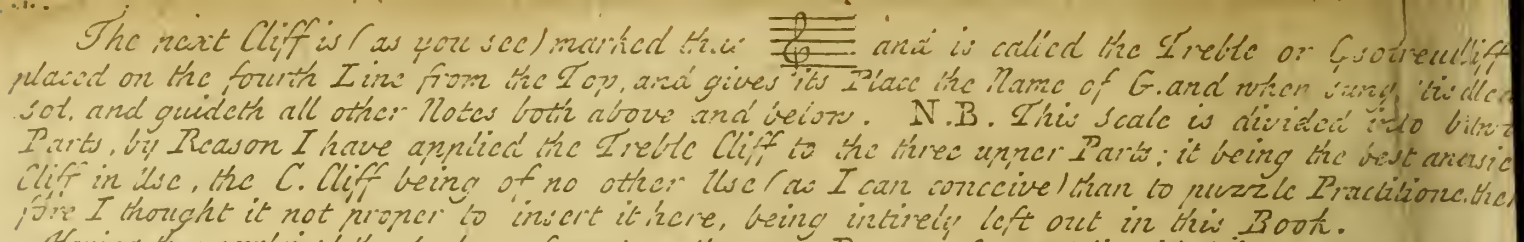 The next Cliff is (as you see) marked thus and is called the Treble or Gsolreutcliff
placed on the fourth Line from the Top, and gives its Place the Name of G. and when sung, 'tis
Sol, and guideth all other Notes both above and below. N.B. This Scale is divided into but
Parts, by Reason I have applied the Treble Cliff to the three upper Parts; it being the best
Cliff in Use, the C. Cliff being of no other Use (as I can conceive) than to puzzle there
fore I thought it not proper to insert it here, being intirely left out in this Book.